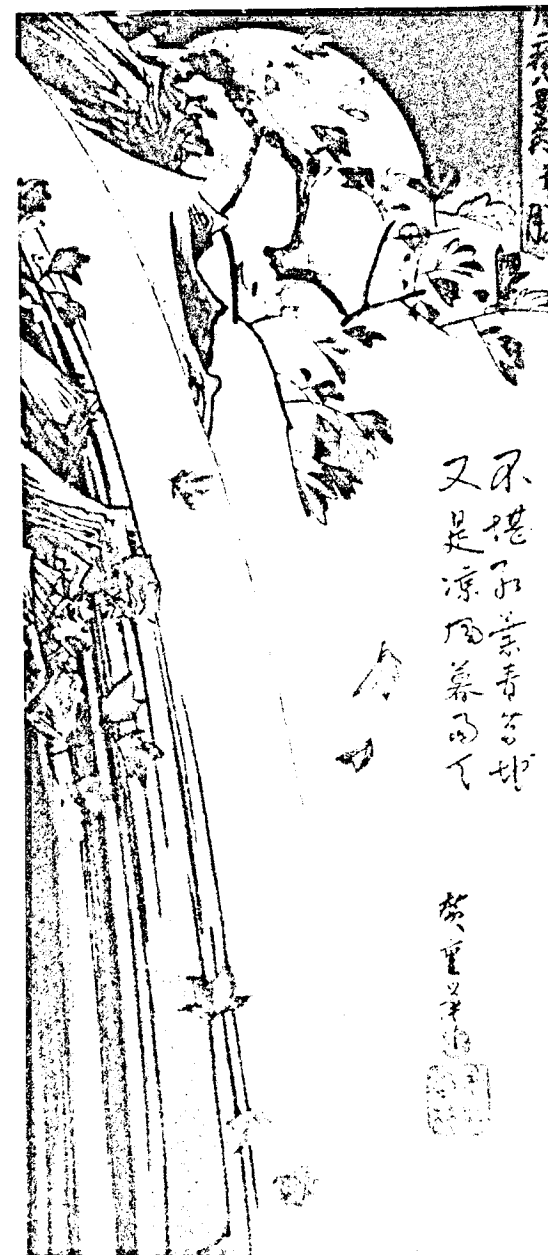 不堪紅葉青苔地
又是涼風暮雨天
廣重筆